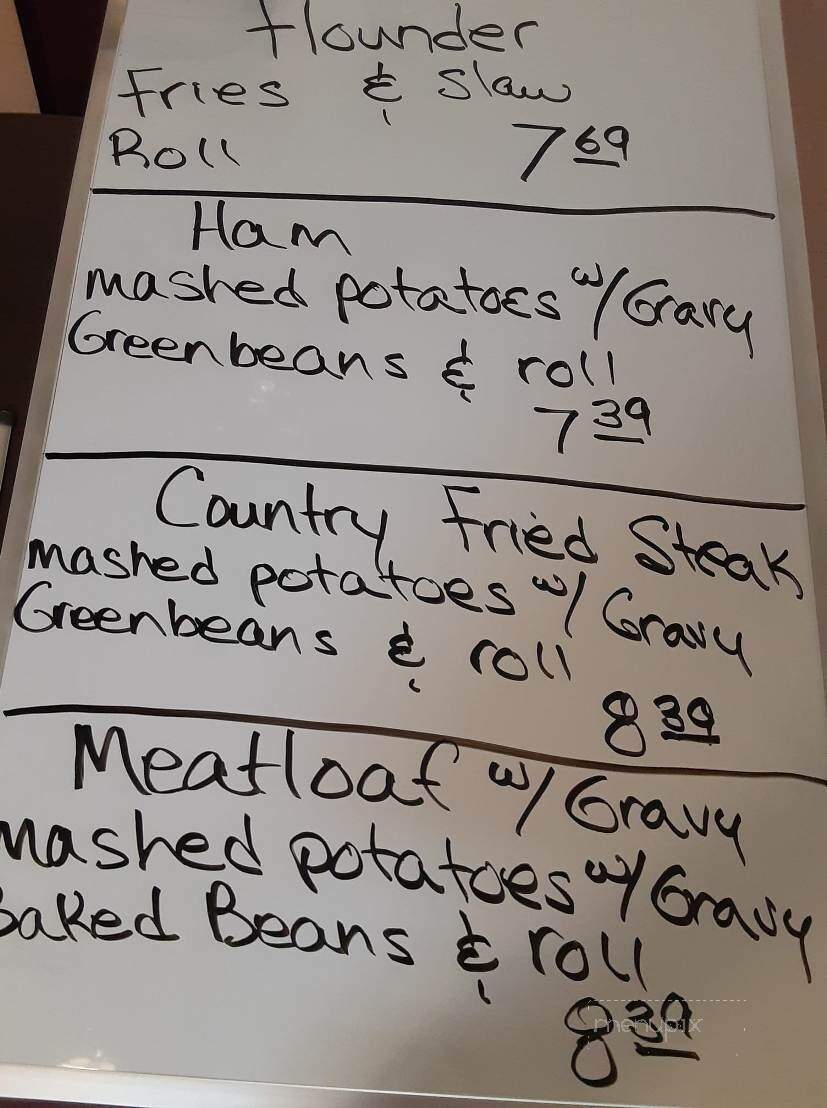 Flounder
Fries & Slaw
Roll 7 69
Ham
mashed potatoes w/ Gravy
Greenbeans & roll
7 39
Country Fried Steak
mashed potatoes w/ Gravy
Greenbeans & roll
8 39
Meatloaf w/ Gravy
mashed potatoes w/ Gravy
Baked Beans & roll
8 39
menupix